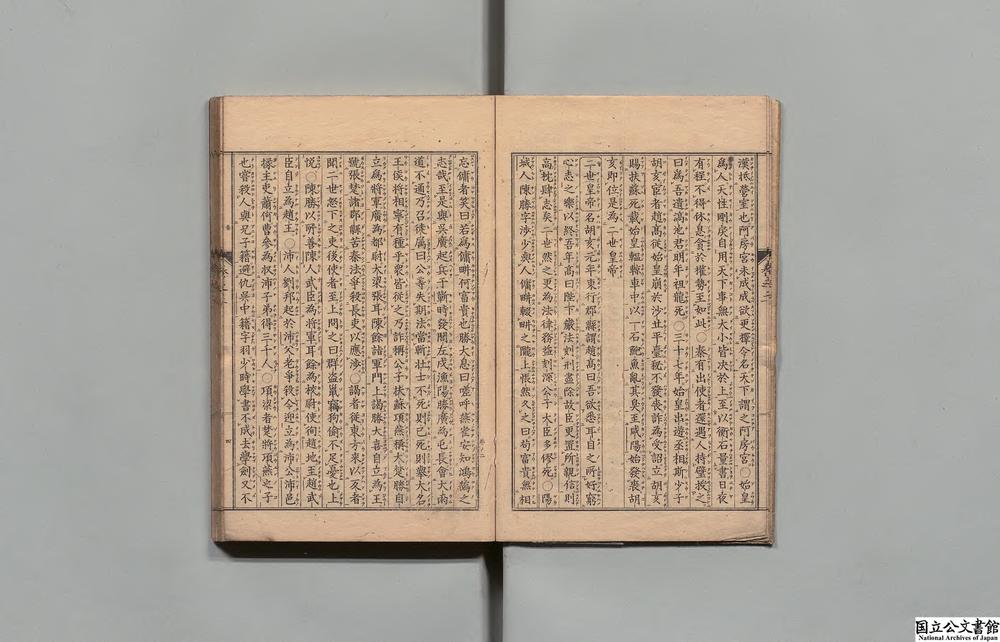 漢抵營室也阿房宮未成成欲更擇令名天下謂之阿房宮○始皇
為人天性剛戾自用天下事無大小皆決於上至以衡石量書日夜
有程不得休息貪於權勢至如此○秦有出使者還遇人持璧授之
曰為吾遺滈池君明年祖龍死○三十七年始皇出遊丞相斯少子
胡亥宦者趙高從始皇崩於沙丘平臺秘不發喪詐為受詔立胡亥
賜扶蘇死載始皇轀輬車中以一石鮑魚亂其臭至咸陽始發喪胡
亥即位是為二世皇帝
二世皇帝名胡亥元年東行郡縣謂趙高曰吾欲悉耳目之所好窮
心志之樂以終吾年高曰陛下嚴法刻刑盡除故臣更置所親信則
高枕肆志矣二世然之更為法律務益刻深公子大臣多僇死○陽
城人陳勝字涉少與人傭畊輟畊之隴上悵然久之曰苟富貴無相
忘傭者笑曰若為傭畊何富貴也勝大息曰嗟呼燕雀安知鴻鵠之
志哉至是與吳廣起兵于蘄時發閭左戍漁陽勝廣為屯長會大雨
道不通乃召徒屬曰公等失期法當斬壯士不死則已死則舉大名
王侯將相寧有種乎衆皆從之乃詐稱公子扶蘇項燕稱大楚勝自
立為將軍廣為都尉大梁張耳陳餘詣軍門上謁勝大喜自立為王
號張楚諸郡縣苦秦法爭殺長吏以應涉○謁者從東方來以反者
聞二世怒下之吏後使者至上問之曰群盜鼠竊狗偷不足憂也上
悅○陳勝以所善陳人武臣為將軍耳餘為校尉使徇趙地至趙武
臣自立為趙王○沛人劉邦起於沛父老爭殺令迎立為沛公沛邑
掾主吏蕭何曹參為收沛子弟得三千人○項梁者楚將項燕之子
也嘗殺人與兄子籍避仇吳中籍字羽少時學書不成去學劍又不
四
国立公文書館
National Archives of Japan